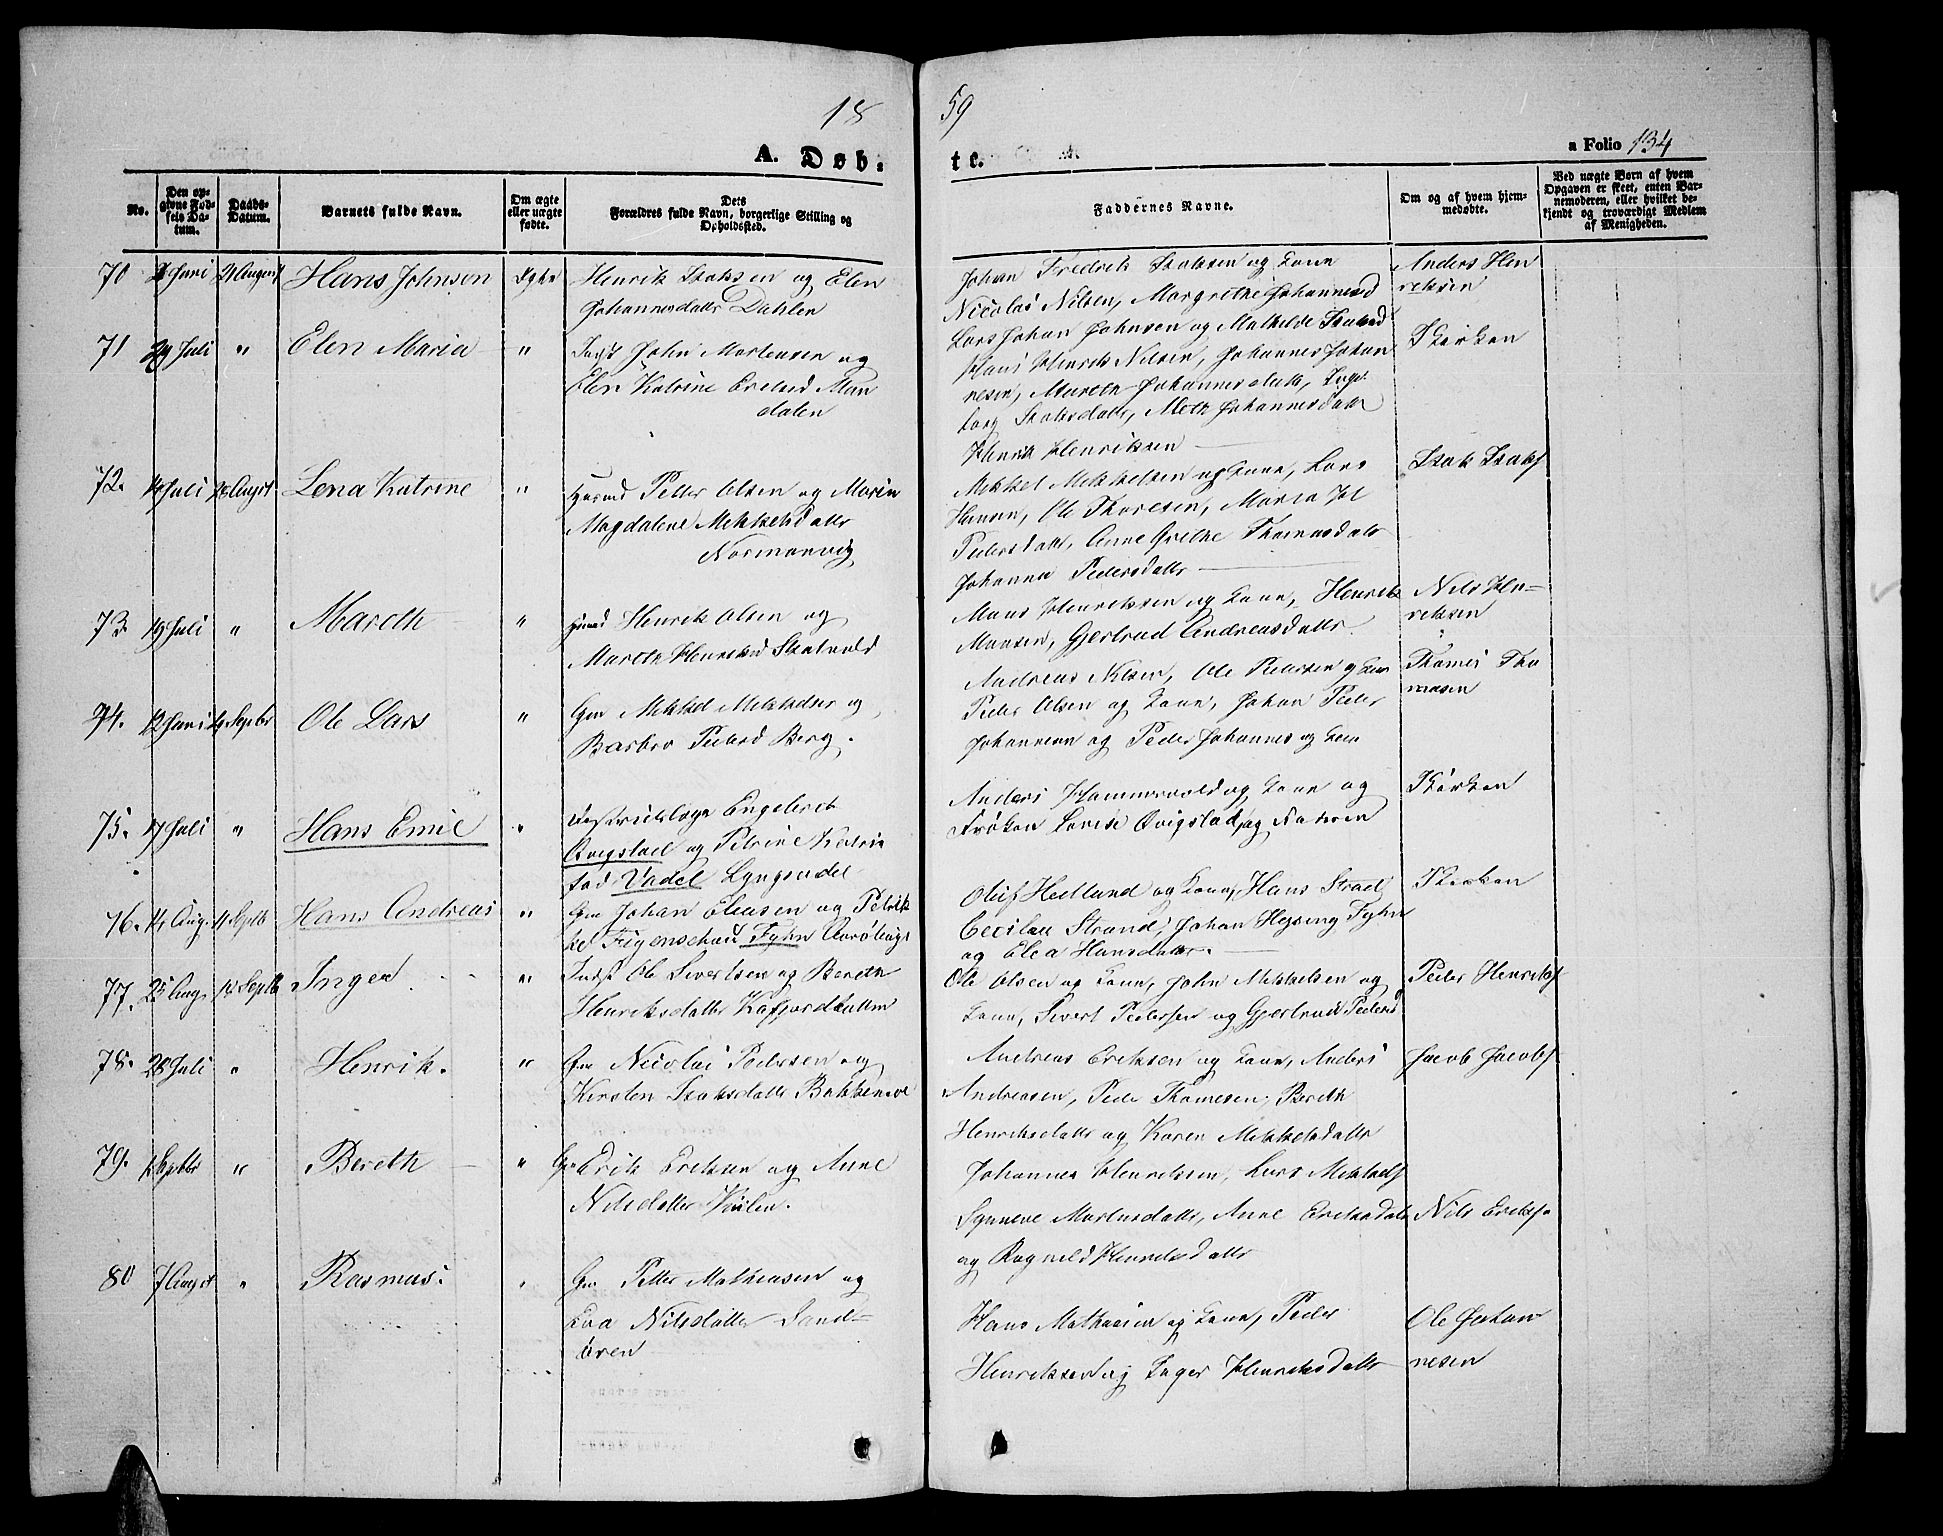 18 59
A. Døb- te.
a Folio 134
No.
Den opgivne Fødsels Datum.
Daabs-Datum.
Barnets fulde Navn.
Om ægte eller uægte fødte.
Dets Forældres fulde Navn, borgerlige Stilling og Opholdssted.
Faddernes Navne.
Om og af hvem hjemmedøbte.
Ved uægte Børn af hvem Opgaven er skeet, enten Barnemoderen, eller hvilket bekjendt og troværdigt Medlem af Menigheden.
70 Juni 21 August Hans Johnsen Henrik Isaksen og Elen
Johannesdatter Dahlen
Johan Fredrik Isaksen og Kone
Nicolai Nilsen, Margrethe Johannesd
Anders Hen
riksen
71 29 Juli " Elen Maria " John Mortensen og
Elen Katrine Eriksd Man
dalen
Lars Johan Johnsen og Mathilde Isaksd
Hans Henrik Nilsen, Johannes Johan
nesen, Mareth Johannesdatter, Inge
borg Isaksdatter, Meth Johannesdatter
Henrik Henriksen
I Kirken
72. 14 Juli 28 August Lena Katrine " Husmd Petter Olsen og Maria
Magdalene Mikkelsdatter
Normanvig
Mikkel Mikkelsen og Kone, Lars
Hansen, Ole Thoresen, Maria
Pedersdatter, Anne Grethe Thomasdatter
Johanna Pedersdatter
Isak Isaks
73. 19 Juli " Mareth " Husmd Henrik Olsen og
Mareth Henriksd Skatvold
Mons Henriksen og Kone, Henrik
Monsen, Gjertrud Andreasdatter
Nils Hen-
riksen
74. 12 Juni Septbr Ole Lars " Gm Mikkel Mikkelsen og
Barbro Pedersd Berg.
Andreas Nilsen, Ole Pedersen og Kone
Peder Olsen og Kone, Johan Peder
Johannesen og Peder Johannes og Kone
Thomas Tho
masen
75. 17 Juli " Hans Emil " Distriktslæge Engebret
Qvigstad og Petrine Katrine
fød Vadel Lyngseidet
Anders Hammervold og Kone og
Frøken Lovise Qvigstad og Faderen
I Kirken
76. 14 Aug. 11 Septb Hans Andreas " Gm Johan Eliasen og Petrik
ke Figenschau Fyhn
Oluf Hedlund og Kone, Hans Strand
Cecilia Strand, Johan Hysing Fyhn
og Elea Hansdatter.
I Kirken
77. 25 Aug. 18 Septb Inger " Indst Ole Sivertsen og Bereth
Henriksdatter Kafjordbotten
Ole Olsen og Kone, John Mikkelsen og
Kone, Sivert Pedersen og Gjertrud Pedersd
Peder Henriks
78. 28 Juli " Henrik. " Gm Nicolai Pedersen og
Kirsten Isaksdatter Bakkeneve
Andreas Eriksen og Kone, Anders
Andreasen, Peder Thomesen, Bereth
Henriksdatter og Karen Mikkelsdatter
Jacob Jacobs
79. Septbr " Bereth " Gm Erik Eriksen og Anne
Nilsdatter
Johannes Henriksen, Lars Mikkels
Synneve Mortensdatter, Anne Eriksdatter
og Ragnild Henriksdatter
Nils Eriks
80 7 August " Rasmus. " Gm Petter Mathiasen og
Eva Nilsdatter Sand-
øren
Hans Mathiasen og Kone, Peder
Henriksen og Inger Henriksdatter
Ole Johan
nesen